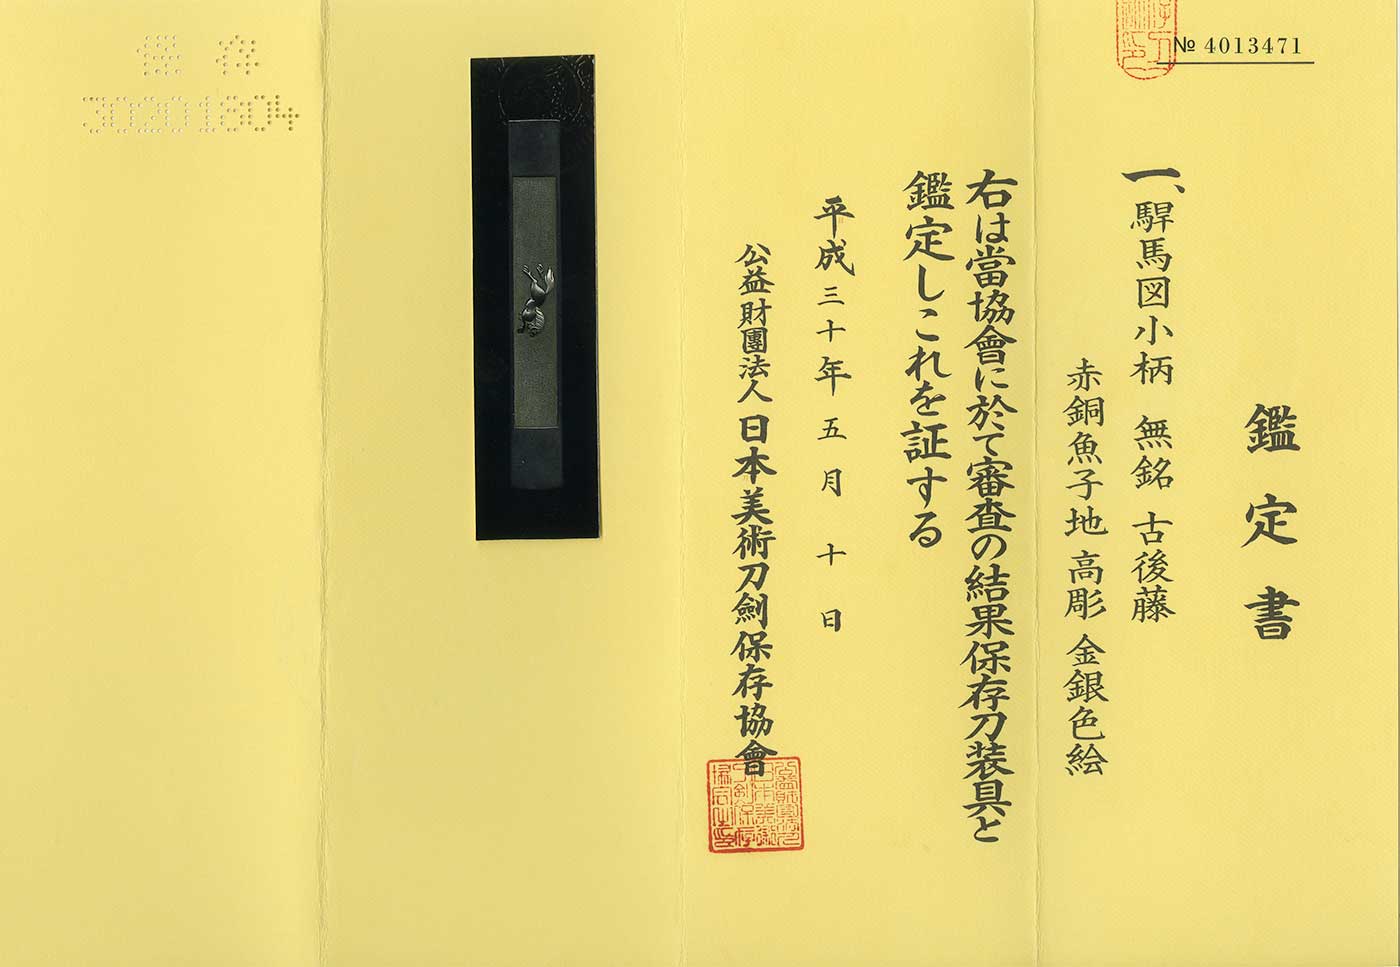 № 4013471
鑑定書
一、駻馬図小柄 無銘 古後藤
赤銅魚子地 高彫 金銀色絵
右は當協會に於て審査の結果保存刀装具と
鑑定しこれを証する
平成三十年五月十日
公益財團法人 日本美術刀劍保存協會
保存
30201804